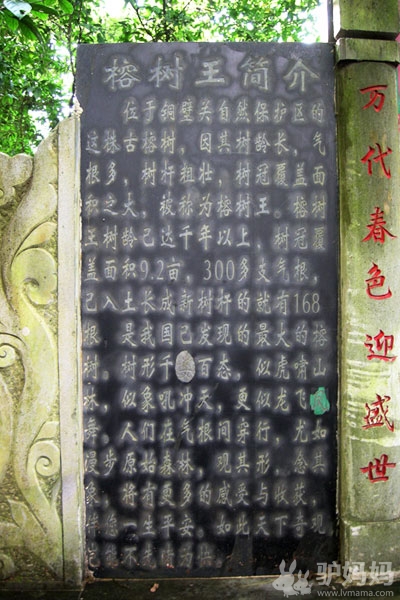 榕树王简介
位于铜壁关自然保护区的
这株古榕树，因其树龄长，气
根多，树杆粗壮，树冠覆盖面
积之大，被称为榕树王。榕树
王树龄已达千年以上，树冠覆
盖面积9.2亩，300多支气根，
已入土长成新树杆的就有168
根，是我国已发现的最大的榕
树。树形千姿百态，似虎啸山
林，似象吼冲天，更似龙飞凤
舞。人们在气根间穿行，尤如
漫步原始森林，观其形，念其
象，将有更多的感受与收获，
一生平安。如此天下奇观
万代春色迎盛世
驴妈妈
www.lvmama.com